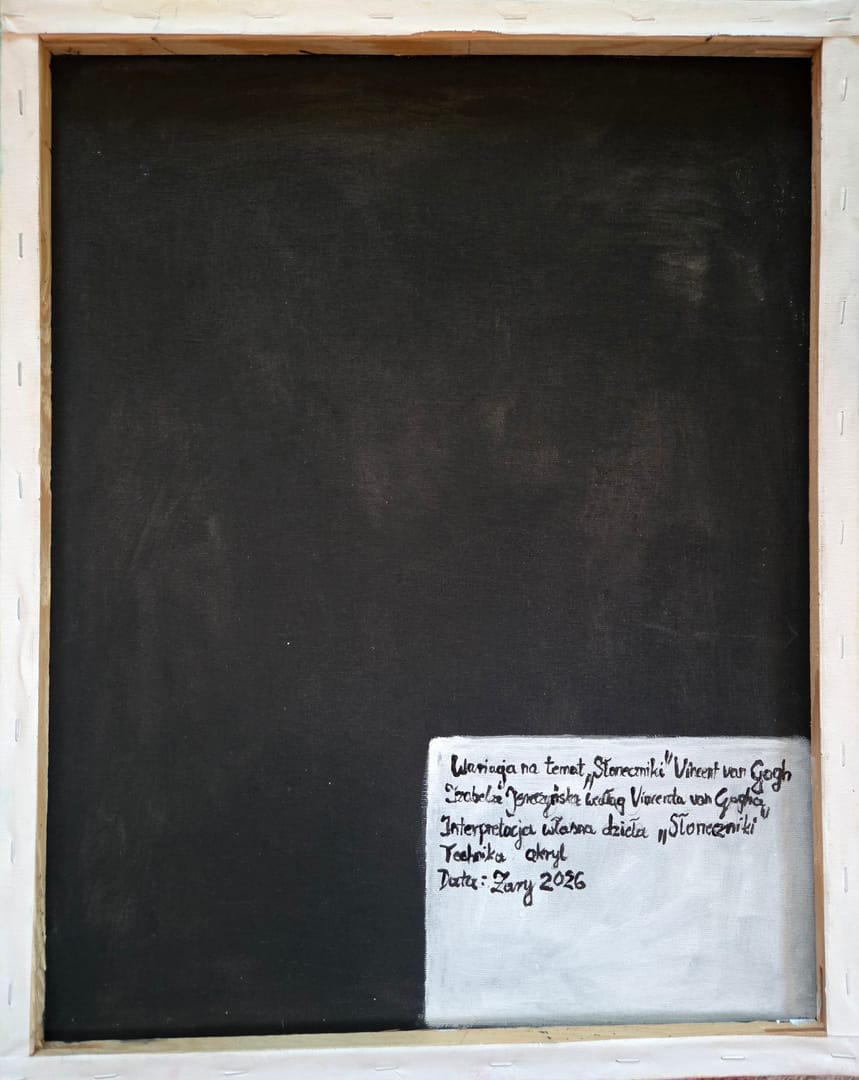 Wariacja na temat „Słoneczniki" Vincent van Gogh
Izabela według Vincenta van Gogha
Interpretacja własna dzieła „Słoneczniki"
Technika akryl
Data: Żary 2026